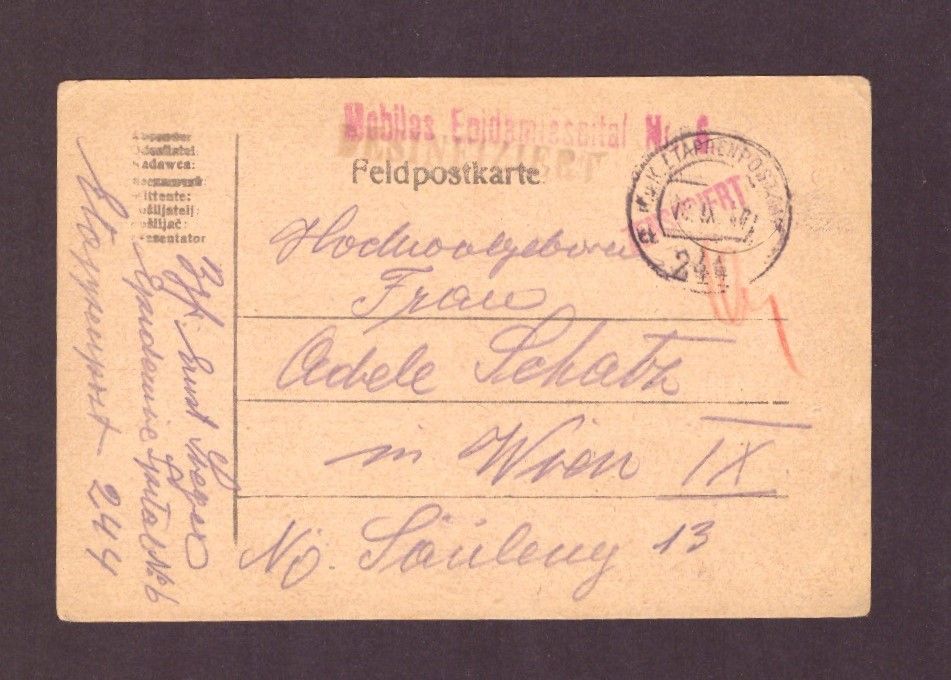 Mobiles Epidemiespital Nr. 6
DESINFIZIERT
Feldpostkarte
K.u.K. ETAPPENPOSTAMT
a
244
ZENSURIERT
Absender
Odesílatel
Nadawca:
Mittente:
Pošiljatelj:
Pošiljač:
Prezentator
Hochwolgeboren
Frau
Adele Schatz
in Wien IX
No. Säuleng 13
Ernst
Epidemie Spital No. 6
Etappenpost 244